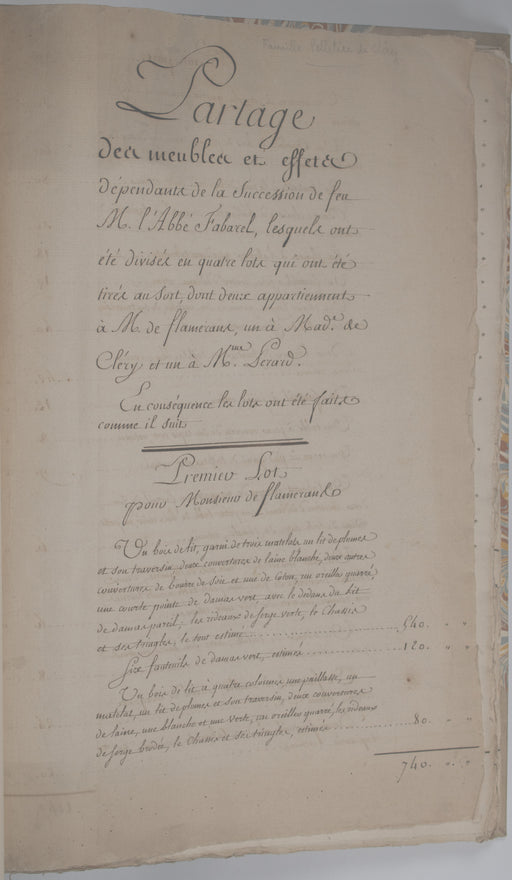 Famille Pelletier de Cléry
Partage
des meubles et effets
dépendants de la Succession de feu
M. l'Abbé Fabarel, lesquels ont
été divisés en quatre lots qui ont été
tirés au Sort, dont deux appartiennent
à M. de flamerans, un à Mad.e de
Cléry et un à M.me Perard.
En conséquence les lots ont été faits
comme il suit
Premier Lot
pour Monsieur de flamerans
Un bois de lit, garni de trois matelats un lit de plumes
et son traversin, deux couvertures de laine blanche, deux autres
couvertures de bourre de Soie et une de Coton, un oreille quarré,
une courte pointe de damas vert, avec le dedans du lit
de damas pareil, les rideaux de serge verte, le Chassis
et ses tringles, le tout estimé 540. " "
Six fauteuils de damas vert, estimés 120. " "
Un bois de lit à quatre colonnes, une paillasse, un
matelat, un lit de plumes et son traversin, deux couvertures
de laine, une blanche et une verte, un oreilles quarré, les rideaux
de serge brodée, le Chassis et ses tringles, estimés 80. " "
740. " "